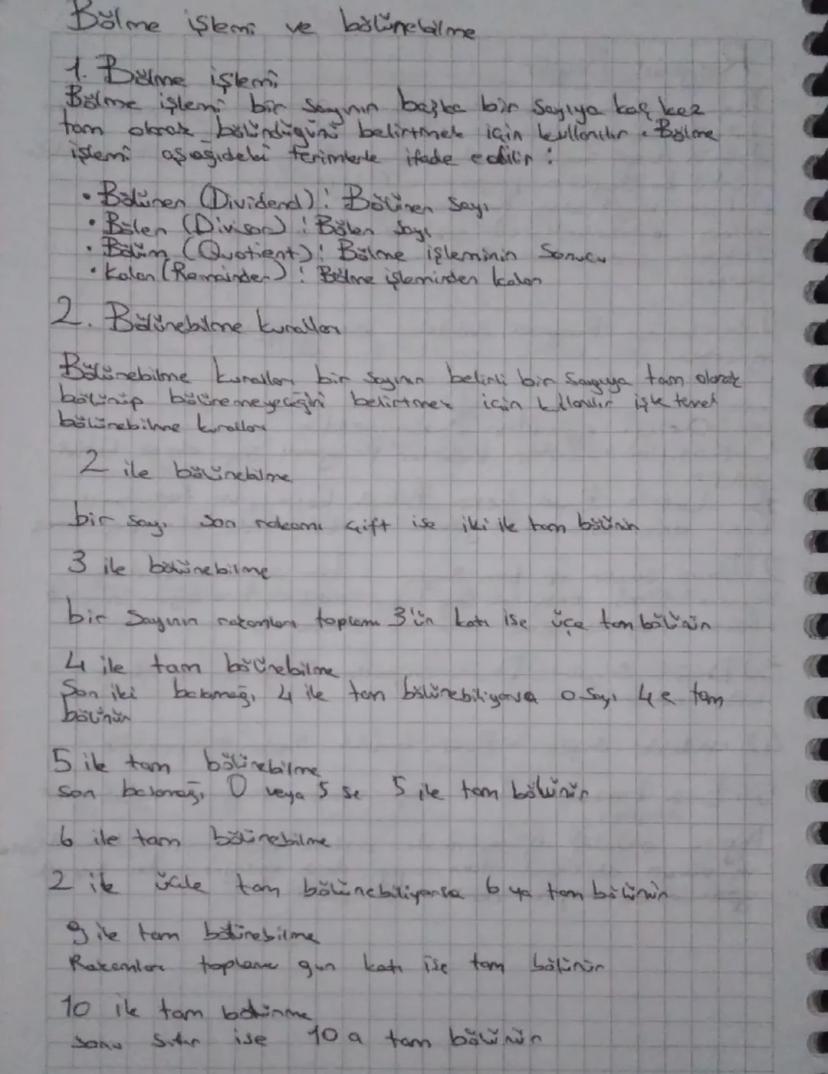 Bölme işlemi ve bölünebilme
1. Bölme işlemi
Bölme işlemi bir sayının başka bir sayıya kaç kez
tam olarak bölündüğünü belirtmek için kullanılır. Bölme
işlemi aşağıdaki terimlerle ifade edilir :
• Bölünen (Dividend) : Bölünen sayı
• Bölen (Divisor) : Bölen sayı
• Bölüm (Quotient) : Bölme işleminin sonucu
• Kalan (Remainder) : Bölme işleminden kalan
2. Bölünebilme kuralları
Bölünebilme kuralları bir sayının belirli bir sayıya tam olarak
bölünüp bölünemeyeceğini belirtmek için kullanılır işte temel
bölünebilme kuralları
2 ile bölünebilme
bir sayı son rakamı çift ise iki ile tam bölünür
3 ile bölünebilme
bir sayının rakamları toplamı 3'ün katı ise üçe tam bölünür
4 ile tam bölünebilme
Son iki basamağı 4 ile tam bölünebiliyorsa o sayı 4 e tam
bölünür
5 ile tam bölünebilme
son basamağı 0 veya 5 se 5 ile tam bölünür
6 ile tam bölünebilme
2 ile üçle tam bölünebiliyorsa 6 ya tam bölünür
9 ile tam bölünebilme
Rakamları toplamı 9un katı ise tam bölünür
10 ile tam bölünme
sonu sıfır ise 10 a tam bölünür